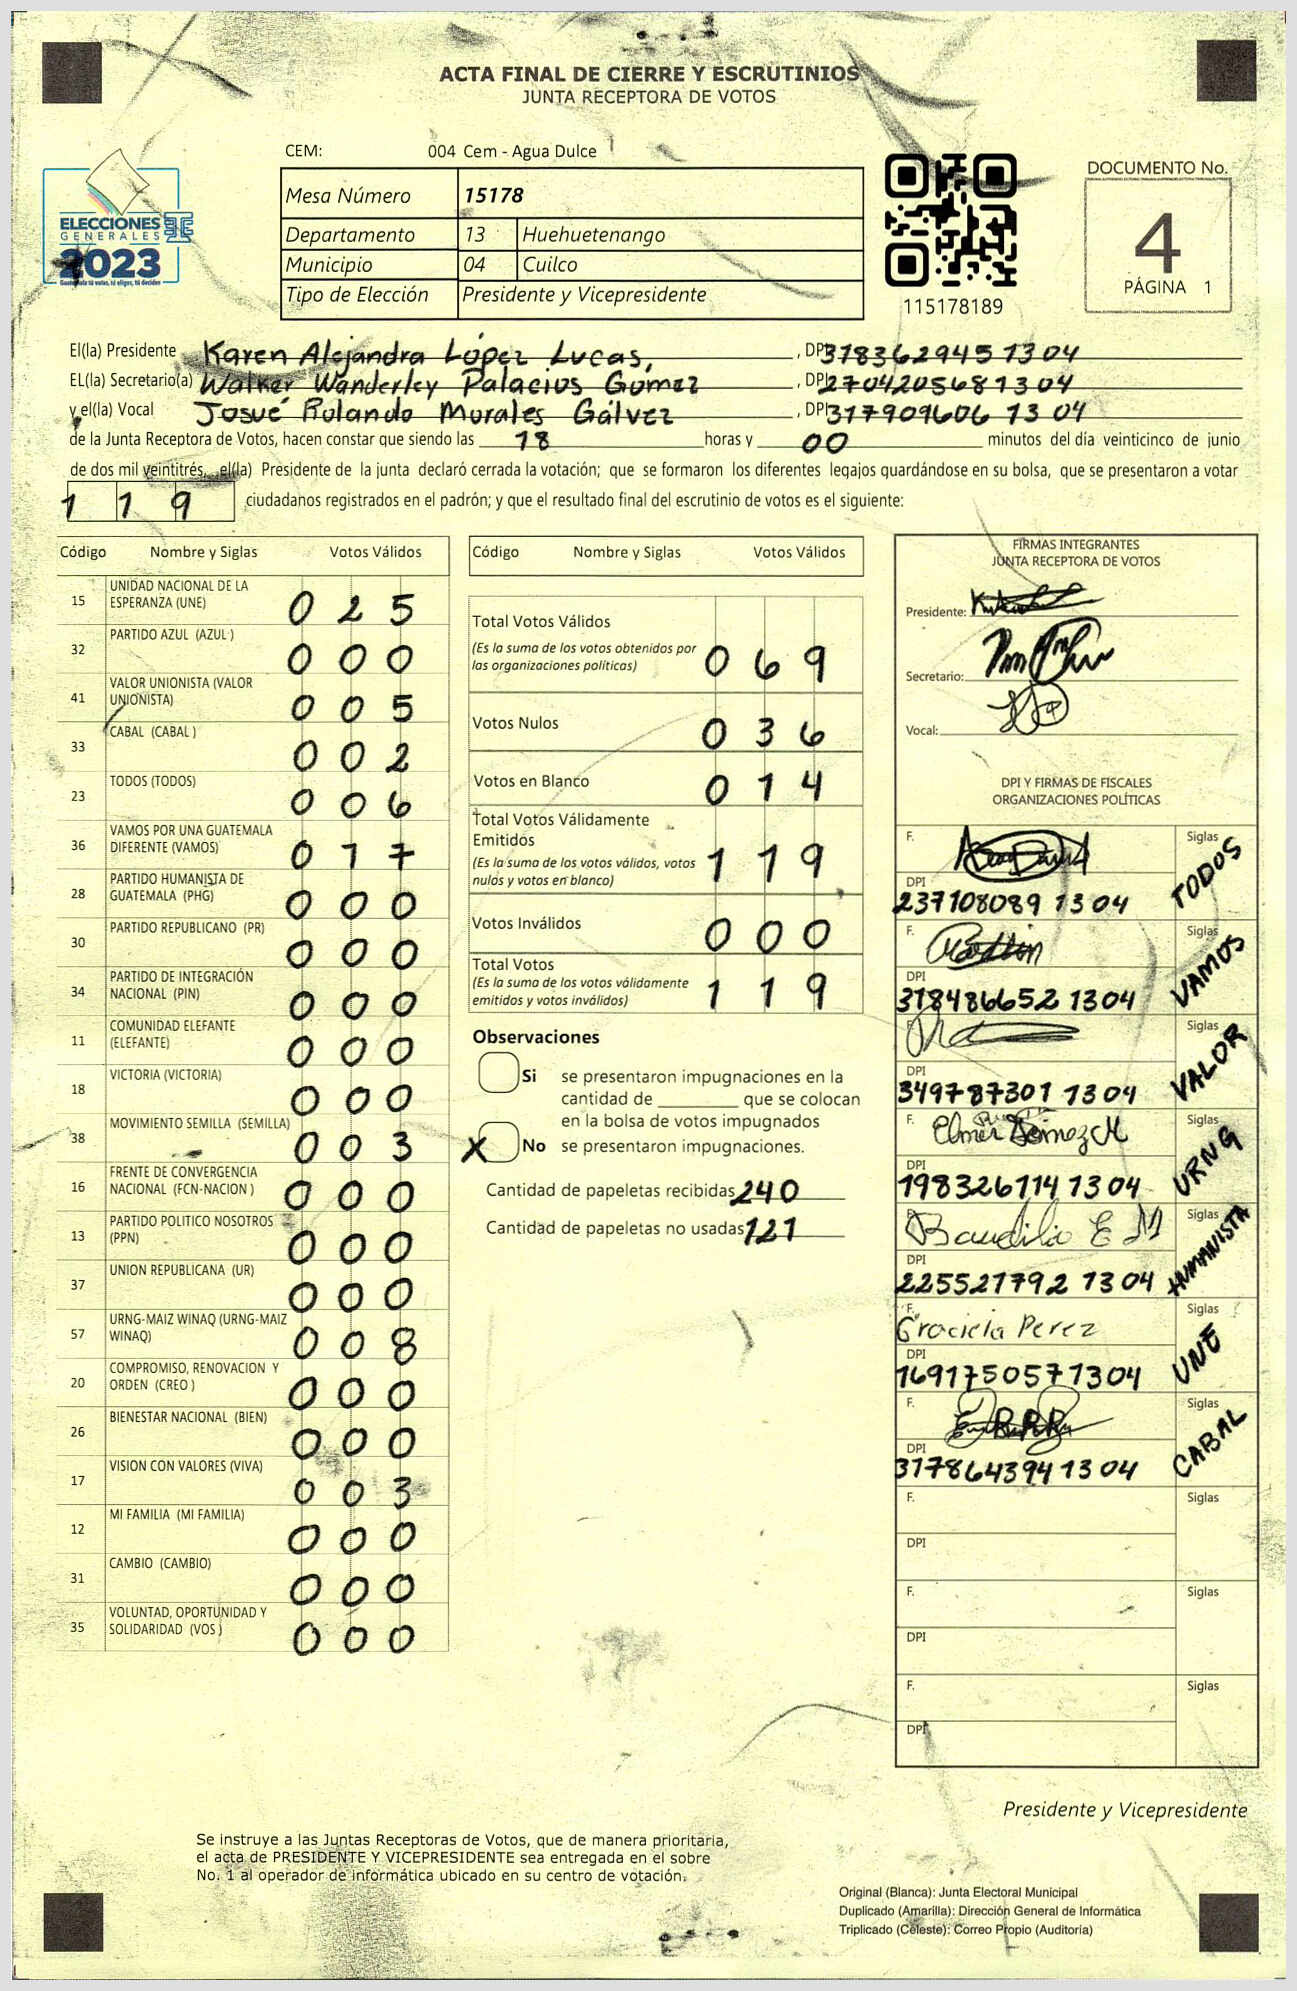 ACTA FINAL DE CIERRE Y ESCRUTINIOS
JUNTA RECEPTORA DE VOTOS
CEM: 004 Cem - Agua Dulce
Mesa Número 15178
Departamento 13 Huehuetenango
Municipio 04 Cuilco
Tipo de Elección Presidente y Vicepresidente
ELECCIONES
GENERALES
2023
Guatemala tú votas, tú eliges, tú decides
115178189
DOCUMENTO No.
4
PÁGINA 1
El(la) Presidente Karen Alejandra López Lucas, , DPI 318362945 1304
EL(la) Secretario(a) Walker Wanderley Palacios Gómez , DPI 270420568 1304
y el(la) Vocal Josué Rolando Morales Gálvez , DPI 317909606 1304
de la Junta Receptora de Votos, hacen constar que siendo las 18 horas y 00 minutos del día veinticinco de junio
de dos mil veintitrés, el(la) Presidente de la junta declaró cerrada la votación; que se formaron los diferentes legajos guardándose en su bolsa, que se presentaron a votar
119 ciudadanos registrados en el padrón; y que el resultado final del escrutinio de votos es el siguiente:
Código Nombre y Siglas Votos Válidos
15 UNIDAD NACIONAL DE LA
ESPERANZA (UNE) 0 2 5
32 PARTIDO AZUL (AZUL ) 0 0 0
41 VALOR UNIONISTA (VALOR
UNIONISTA) 0 0 5
33 CABAL (CABAL ) 0 0 2
23 TODOS (TODOS) 0 0 6
36 VAMOS POR UNA GUATEMALA
DIFERENTE (VAMOS) 0 1 7
28 PARTIDO HUMANISTA DE
GUATEMALA (PHG) 0 0 0
30 PARTIDO REPUBLICANO (PR) 0 0 0
34 PARTIDO DE INTEGRACIÓN
NACIONAL (PIN) 0 0 0
11 COMUNIDAD ELEFANTE
(ELEFANTE) 0 0 0
18 VICTORIA (VICTORIA) 0 0 0
38 MOVIMIENTO SEMILLA (SEMILLA) 0 0 3
16 FRENTE DE CONVERGENCIA
NACIONAL (FCN-NACION ) 0 0 0
13 PARTIDO POLITICO NOSOTROS
(PPN) 0 0 0
37 UNION REPUBLICANA (UR) 0 0 0
57 URNG-MAIZ WINAQ (URNG-MAIZ
WINAQ) 0 0 8
20 COMPROMISO, RENOVACION Y
ORDEN (CREO ) 0 0 0
26 BIENESTAR NACIONAL (BIEN) 0 0 0
17 VISION CON VALORES (VIVA) 0 0 3
12 MI FAMILIA (MI FAMILIA) 0 0 0
31 CAMBIO (CAMBIO) 0 0 0
35 VOLUNTAD, OPORTUNIDAD Y
SOLIDARIDAD (VOS ) 0 0 0
Código Nombre y Siglas Votos Válidos
Total Votos Válidos
(Es la suma de los votos obtenidos por
las organizaciones políticas) 0 6 9
Votos Nulos 0 3 6
Votos en Blanco 0 1 4
Total Votos Válidamente
Emitidos
(Es la suma de los votos válidos, votos
nulos y votos en blanco) 1 1 9
Votos Inválidos 0 0 0
Total Votos
(Es la suma de los votos válidamente
emitidos y votos inválidos) 1 1 9
Observaciones
Si se presentaron impugnaciones en la
cantidad de ________ que se colocan
en la bolsa de votos impugnados
X No se presentaron impugnaciones.
Cantidad de papeletas recibidas 240
Cantidad de papeletas no usadas 121
FIRMAS INTEGRANTES
JUNTA RECEPTORA DE VOTOS
Presidente:
Secretario:
Vocal:
DPI Y FIRMAS DE FISCALES
ORGANIZACIONES POLÍTICAS
F. Siglas TODOS
DPI
237108089 1304
F. Siglas VAMOS
DPI
318486652 1304
F. Siglas VALOR
DPI
349787301 1304
F. Elmer Gómez M Siglas URNG
DPI
198326114 1304
F. Baudilio E M Siglas HUMANISTA
DPI
225521792 1304
F. Graciela Perez Siglas UNE
DPI
169175057 1304
F. Siglas CABAL
DPI
317864394 1304
F. Siglas
DPI
F. Siglas
DPI
F. Siglas
DPI
Presidente y Vicepresidente
Se instruye a las Juntas Receptoras de Votos, que de manera prioritaria,
el acta de PRESIDENTE Y VICEPRESIDENTE sea entregada en el sobre
No. 1 al operador de informática ubicado en su centro de votación.
Original (Blanca): Junta Electoral Municipal
Duplicado (Amarilla): Dirección General de Informática
Triplicado (Celeste): Correo Propio (Auditoría)